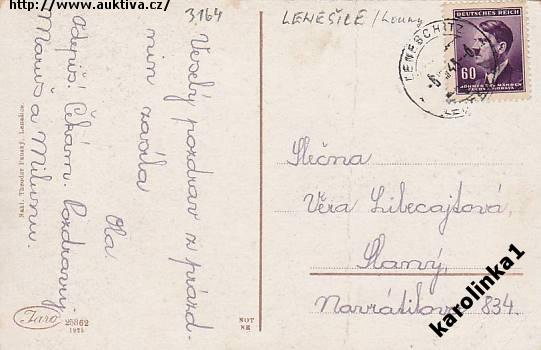 http://www.auktiva.cz/
3164
LENEŠICE / Louny
DEUTSCHES REICH
60
BÖHMEN U. MÄHREN
ČECHY A MORAVA
LENESCHITZ
Veselý pozdrav z prázd-
nin zasílá
Ola
Odepiš! Čekám. Pozdravuj
Maruš a Milusnu.
Nakl. Theodor Panský, Lenešice.
Slečna
Věra Libecajtová,
Slaný,
Navrátilova 834.
Jaro
25862
1925
NOT
NE
karolinka1